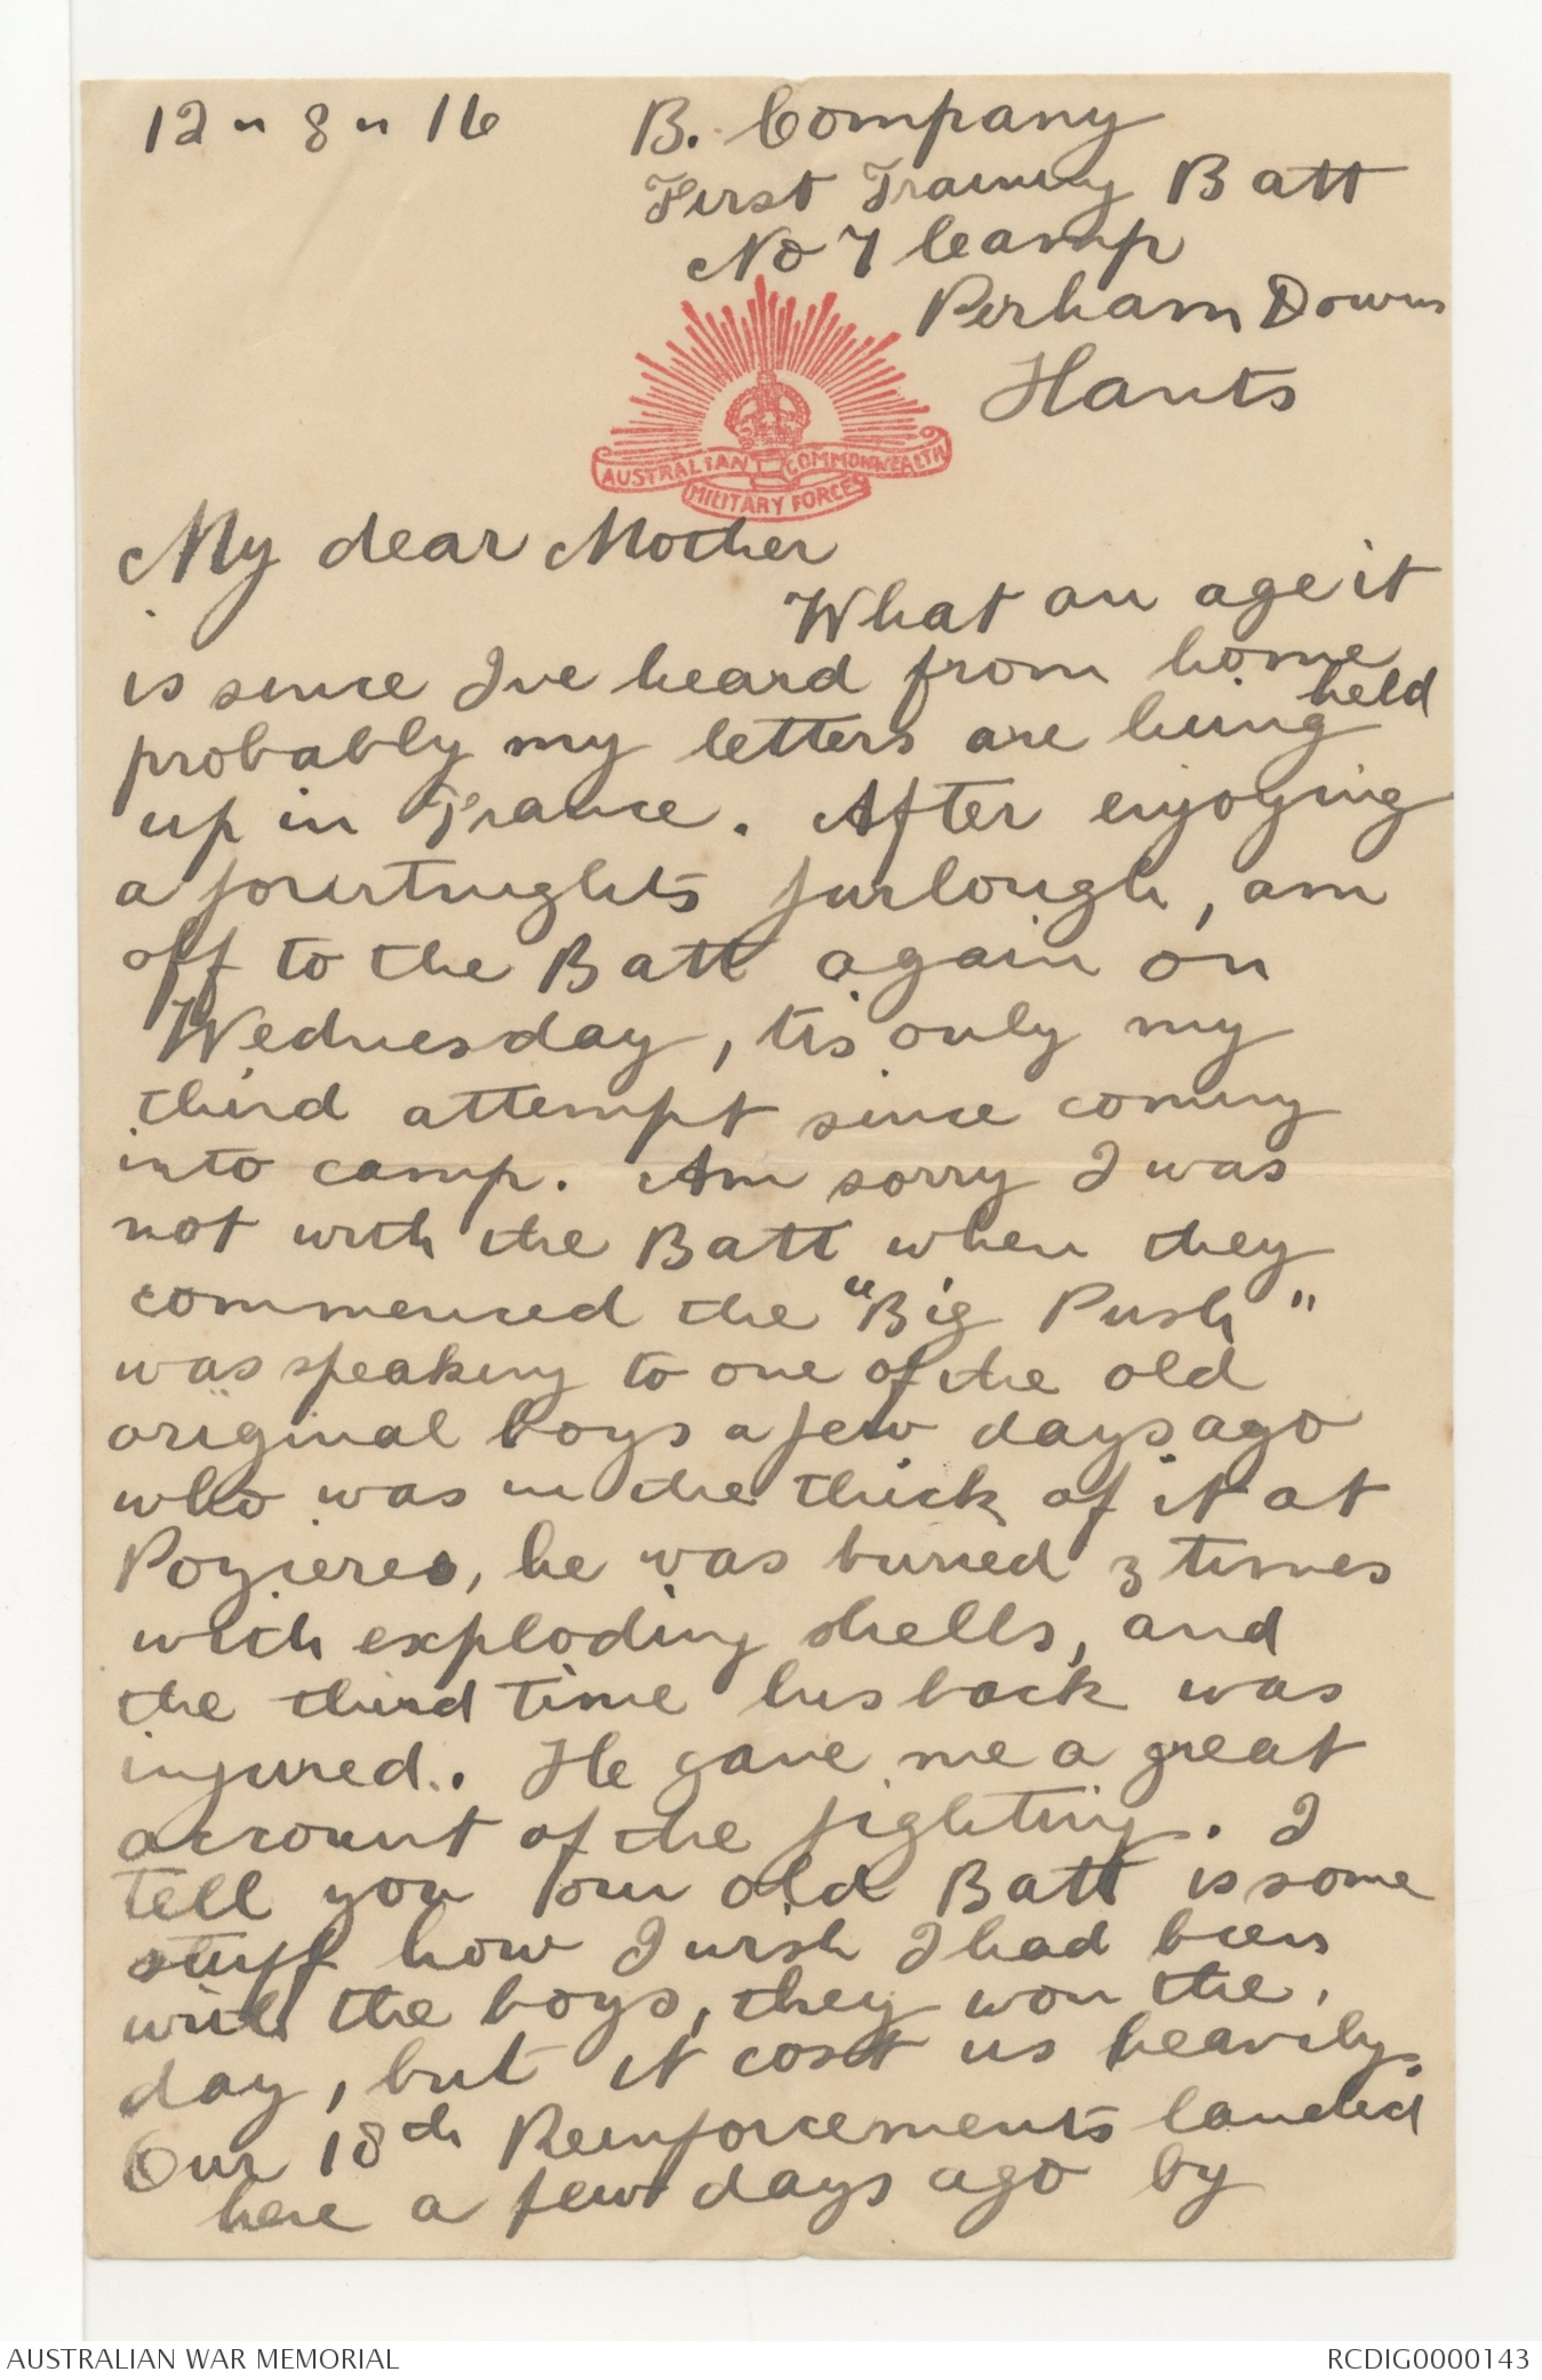 12 " 8 " 16
B. Company
First Training Batt
No 7 Camp
Perham Downs
Hants
AUSTRALIAN COMMONWEALTH
MILITARY FORCES
My dear Mother
What an age it
is since Ive heard from home
probably my letters are being held
up in France. After enjoying
a fourtnights furlough, am
off to the Batt again on
Wednesday, tis only my
third attempt since coming
into camp. Am sorry I was
not with the Batt when they
commenced the "Big Push"
was speaking to one of the old
original boys a few days ago
who was in the thick of it at
Pozieres, he was buried 3 times
with exploding shells, and
the third time his back was
injured.. He gave me a great
account of the fighting. I
tell you our old Batt is some
stuff how I wish I had been
with the boys, they won the
day, but it cost us heavily.
Our 18th Reinforcements landed
here a few days ago by
AUSTRALIAN WAR MEMORIAL
RCDIG0000143